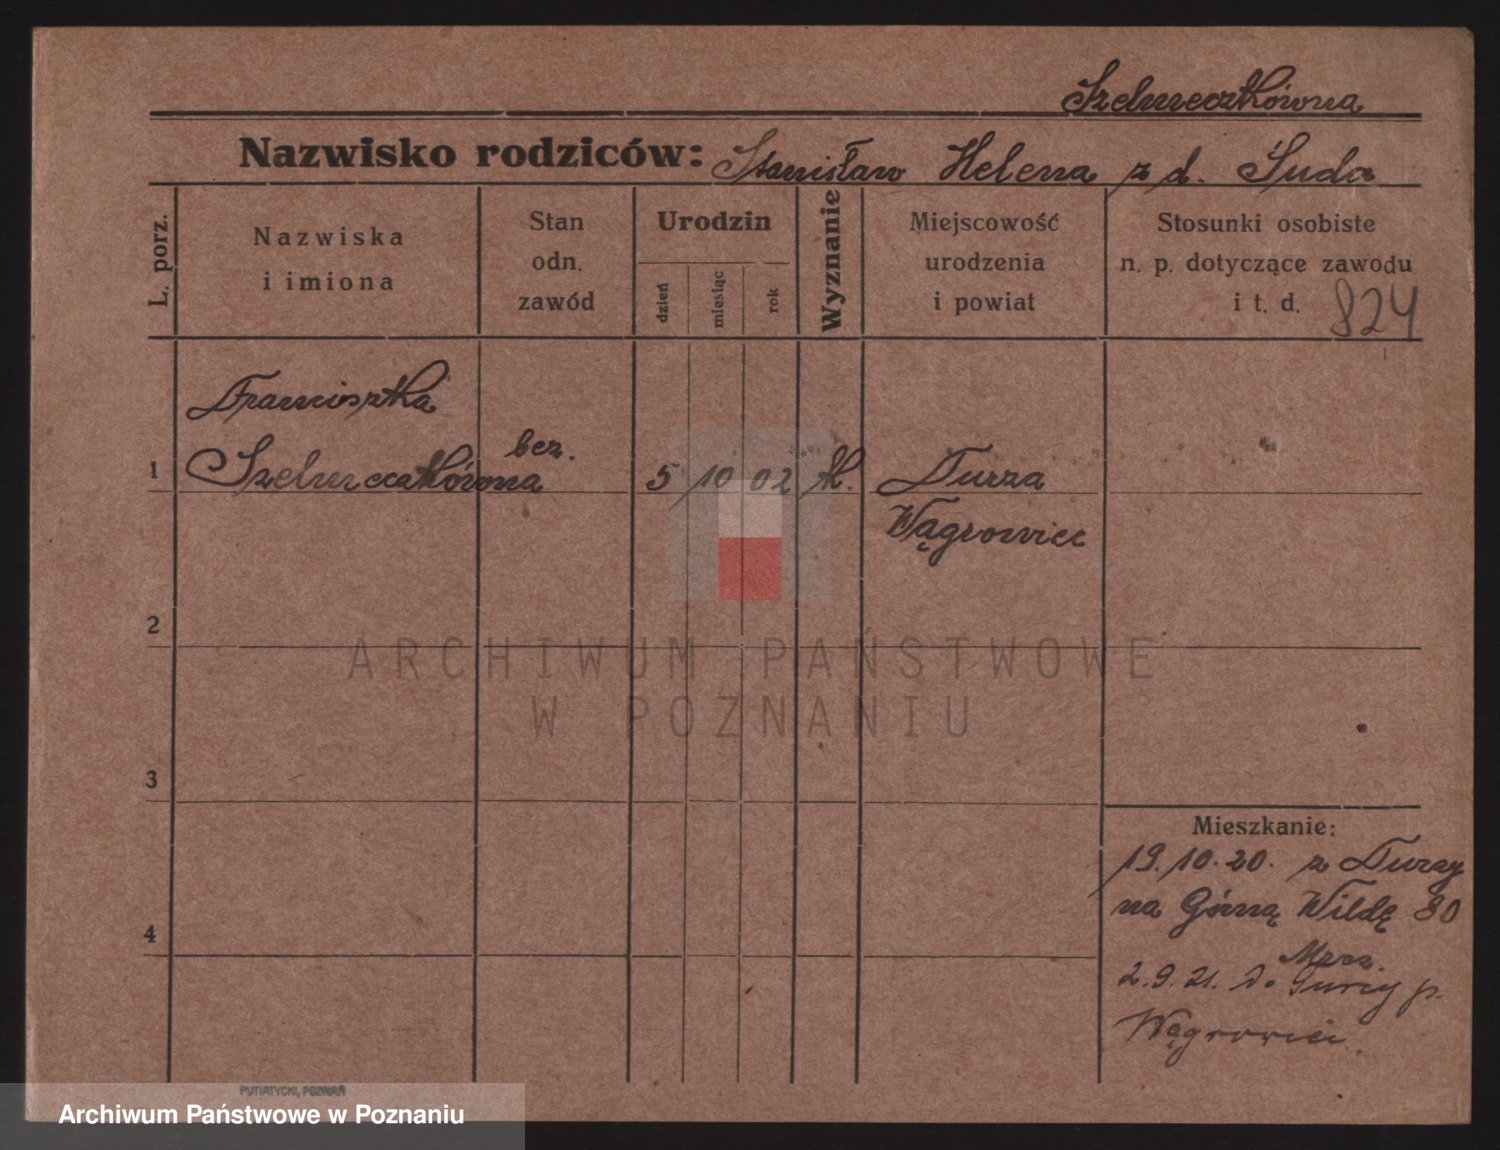 Szelmeczkówna
Nazwisko rodziców: Stanisław Helena z d. Suda
L. porz.
Nazwiska
i imiona
Stan
odn.
zawód
Urodzin
dzień
miesiąc
rok
Wyznanie
Miejscowość
urodzenia
i powiat
Stosunki osobiste
n. p. dotyczące zawodu
i t. d. 824
Franciszka
1 Szelmeczkówna bez. 5 10 02 k. Turza
Wągrowiec
2
ARCHIWUM PAŃSTWOWE
W POZNANIU
3
Mieszkanie:
19.10.20. z Turzy
na Górną Wildę 80
4
2.9.21. do Turzy p.
Wągrowiec.
PUTIATYCKI, POZNAŃ
Archiwum Państwowe w Poznaniu